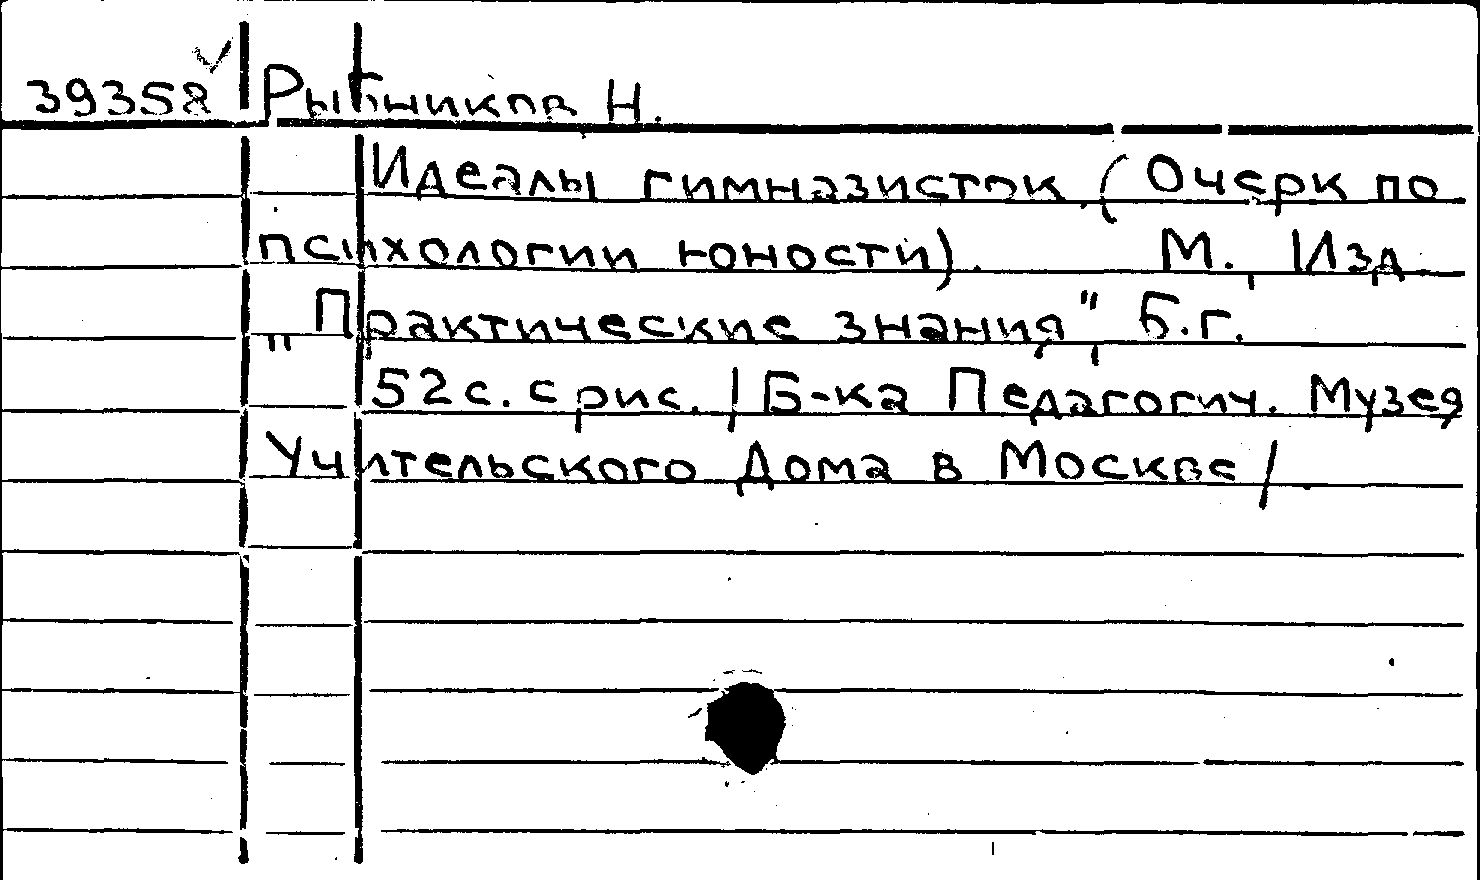 39358 Рыбников Н.
Идеалы гимназисток. (Очерк по
психологии юности). М., Изд
"Практические знания", Б.г.
52 с. с рис. / Б-ка Педагогич. Музея
Учительского Дома в Москве /.